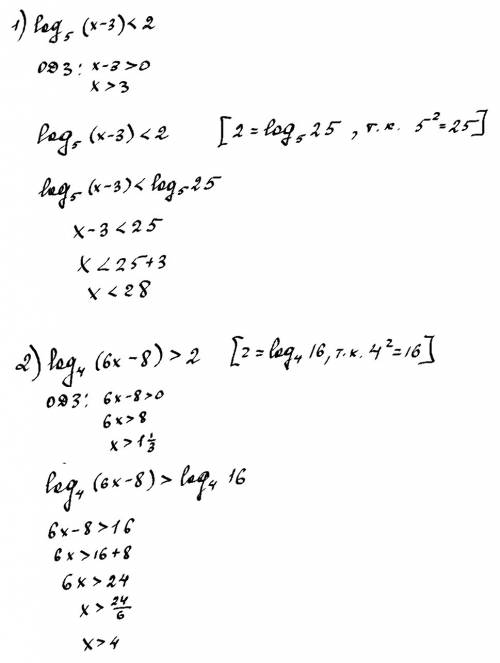 1) log₅ (x-3) < 2
ОДЗ: x-3>0
x>3
log₅ (x-3) < 2 [2 = log₅ 25, т.к. 5²=25]
log₅ (x-3) < log₅ 25
x-3 < 25
x < 25+3
x < 28
2) log₄ (6x-8) > 2 [2 = log₄ 16, т.к. 4²=16]
ОДЗ: 6x-8>0
6x>8
x>1 1/3
log₄ (6x-8) > log₄ 16
6x-8>16
6x>16+8
6x>24
x> 24/6
x>4